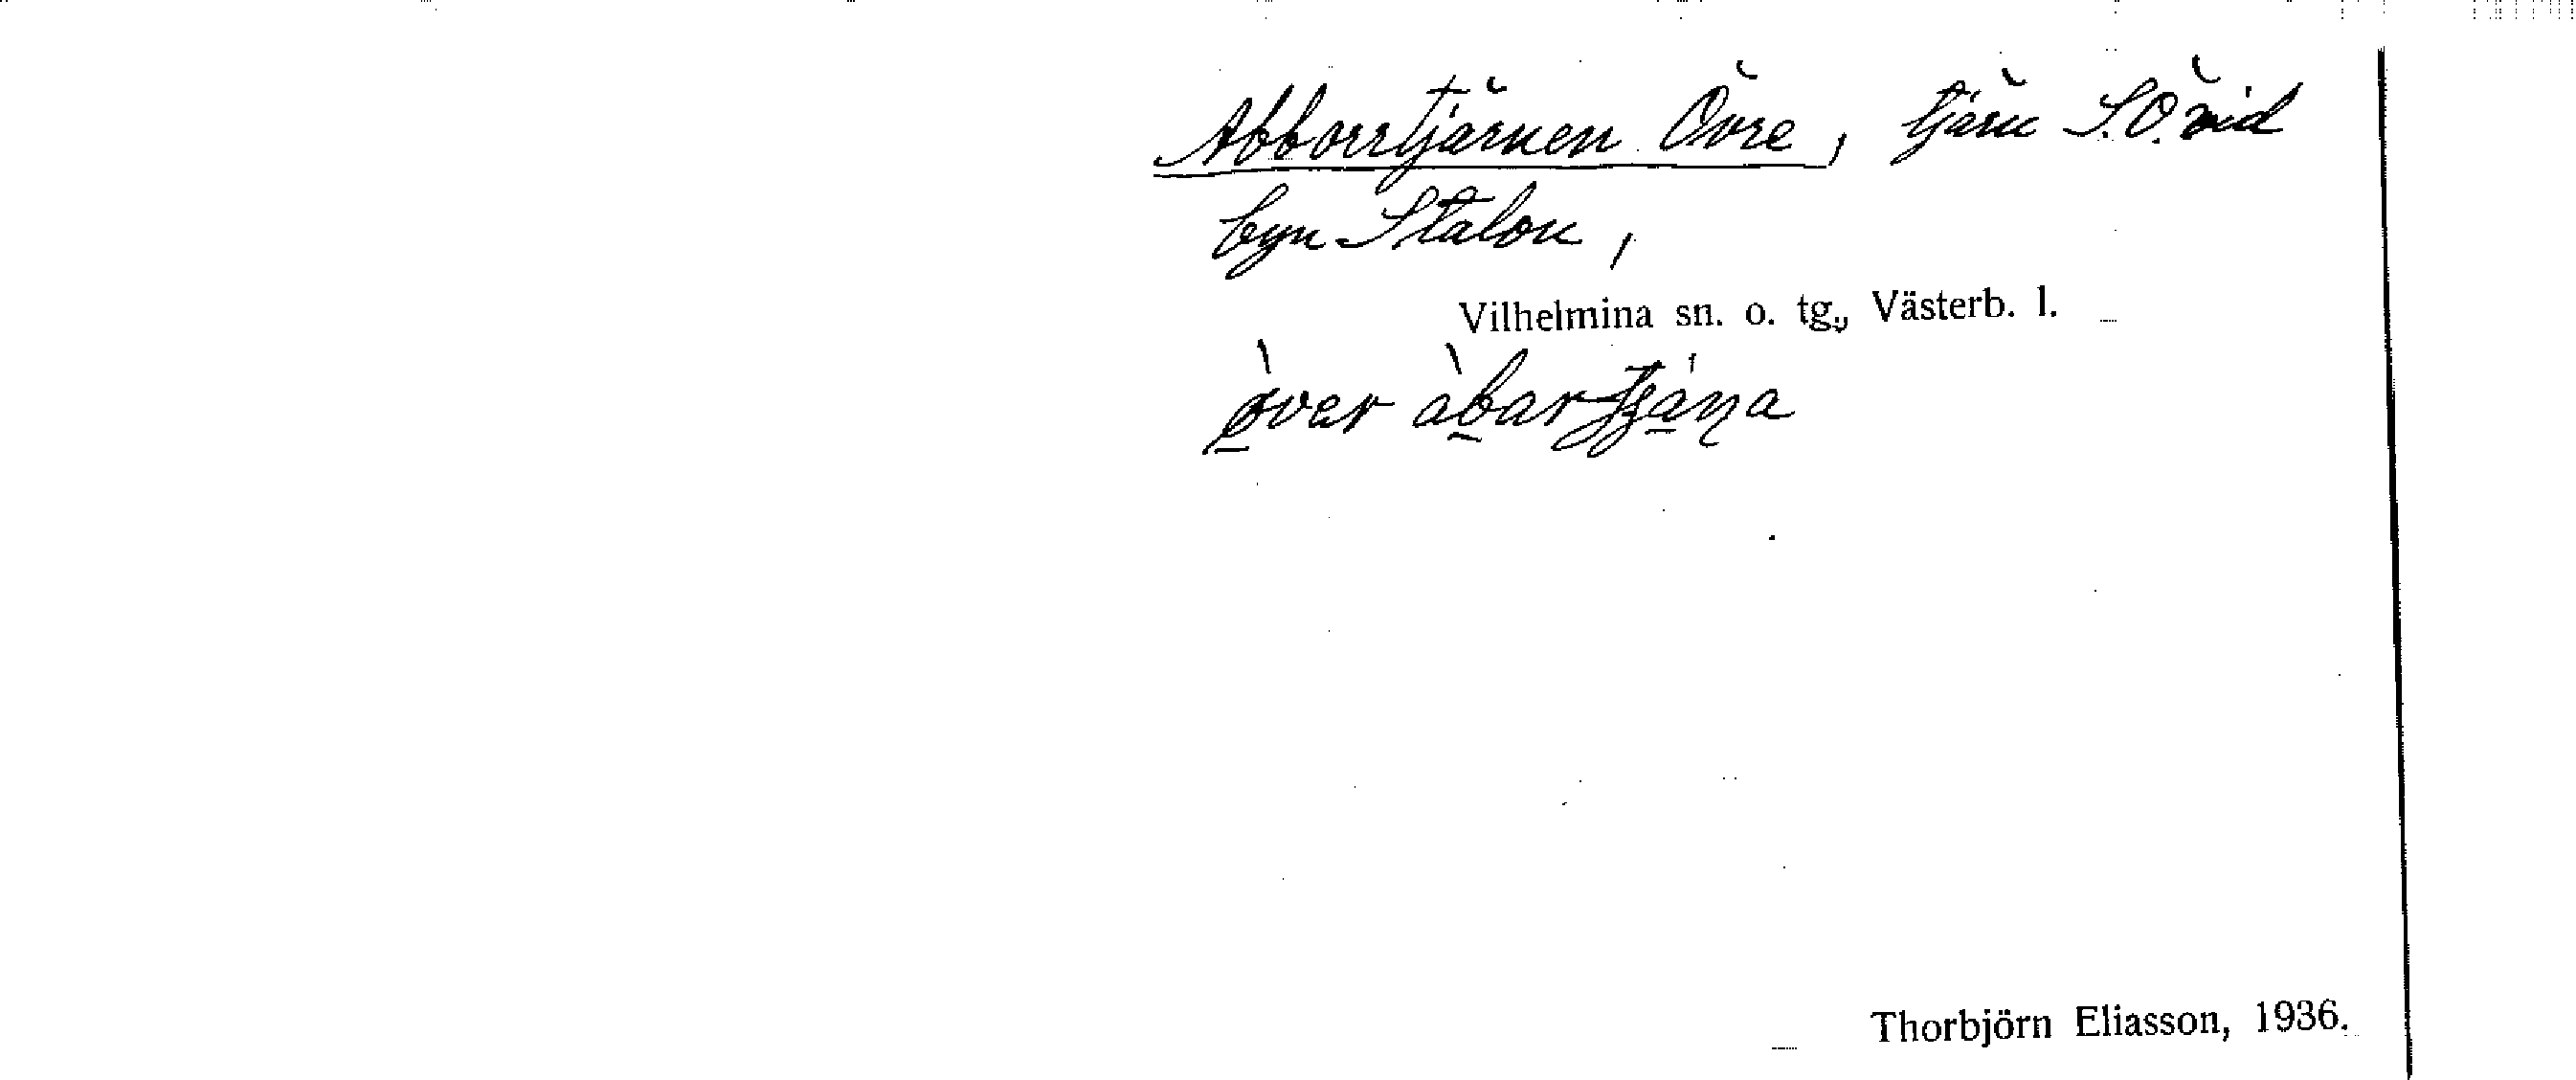 Abborrtjärnen Övre, tjärn S.Ö. vid
byn Stalon,
Vilhelmina sn. o. tg., Västerb. l.
Thorbjörn Eliasson, 1936.